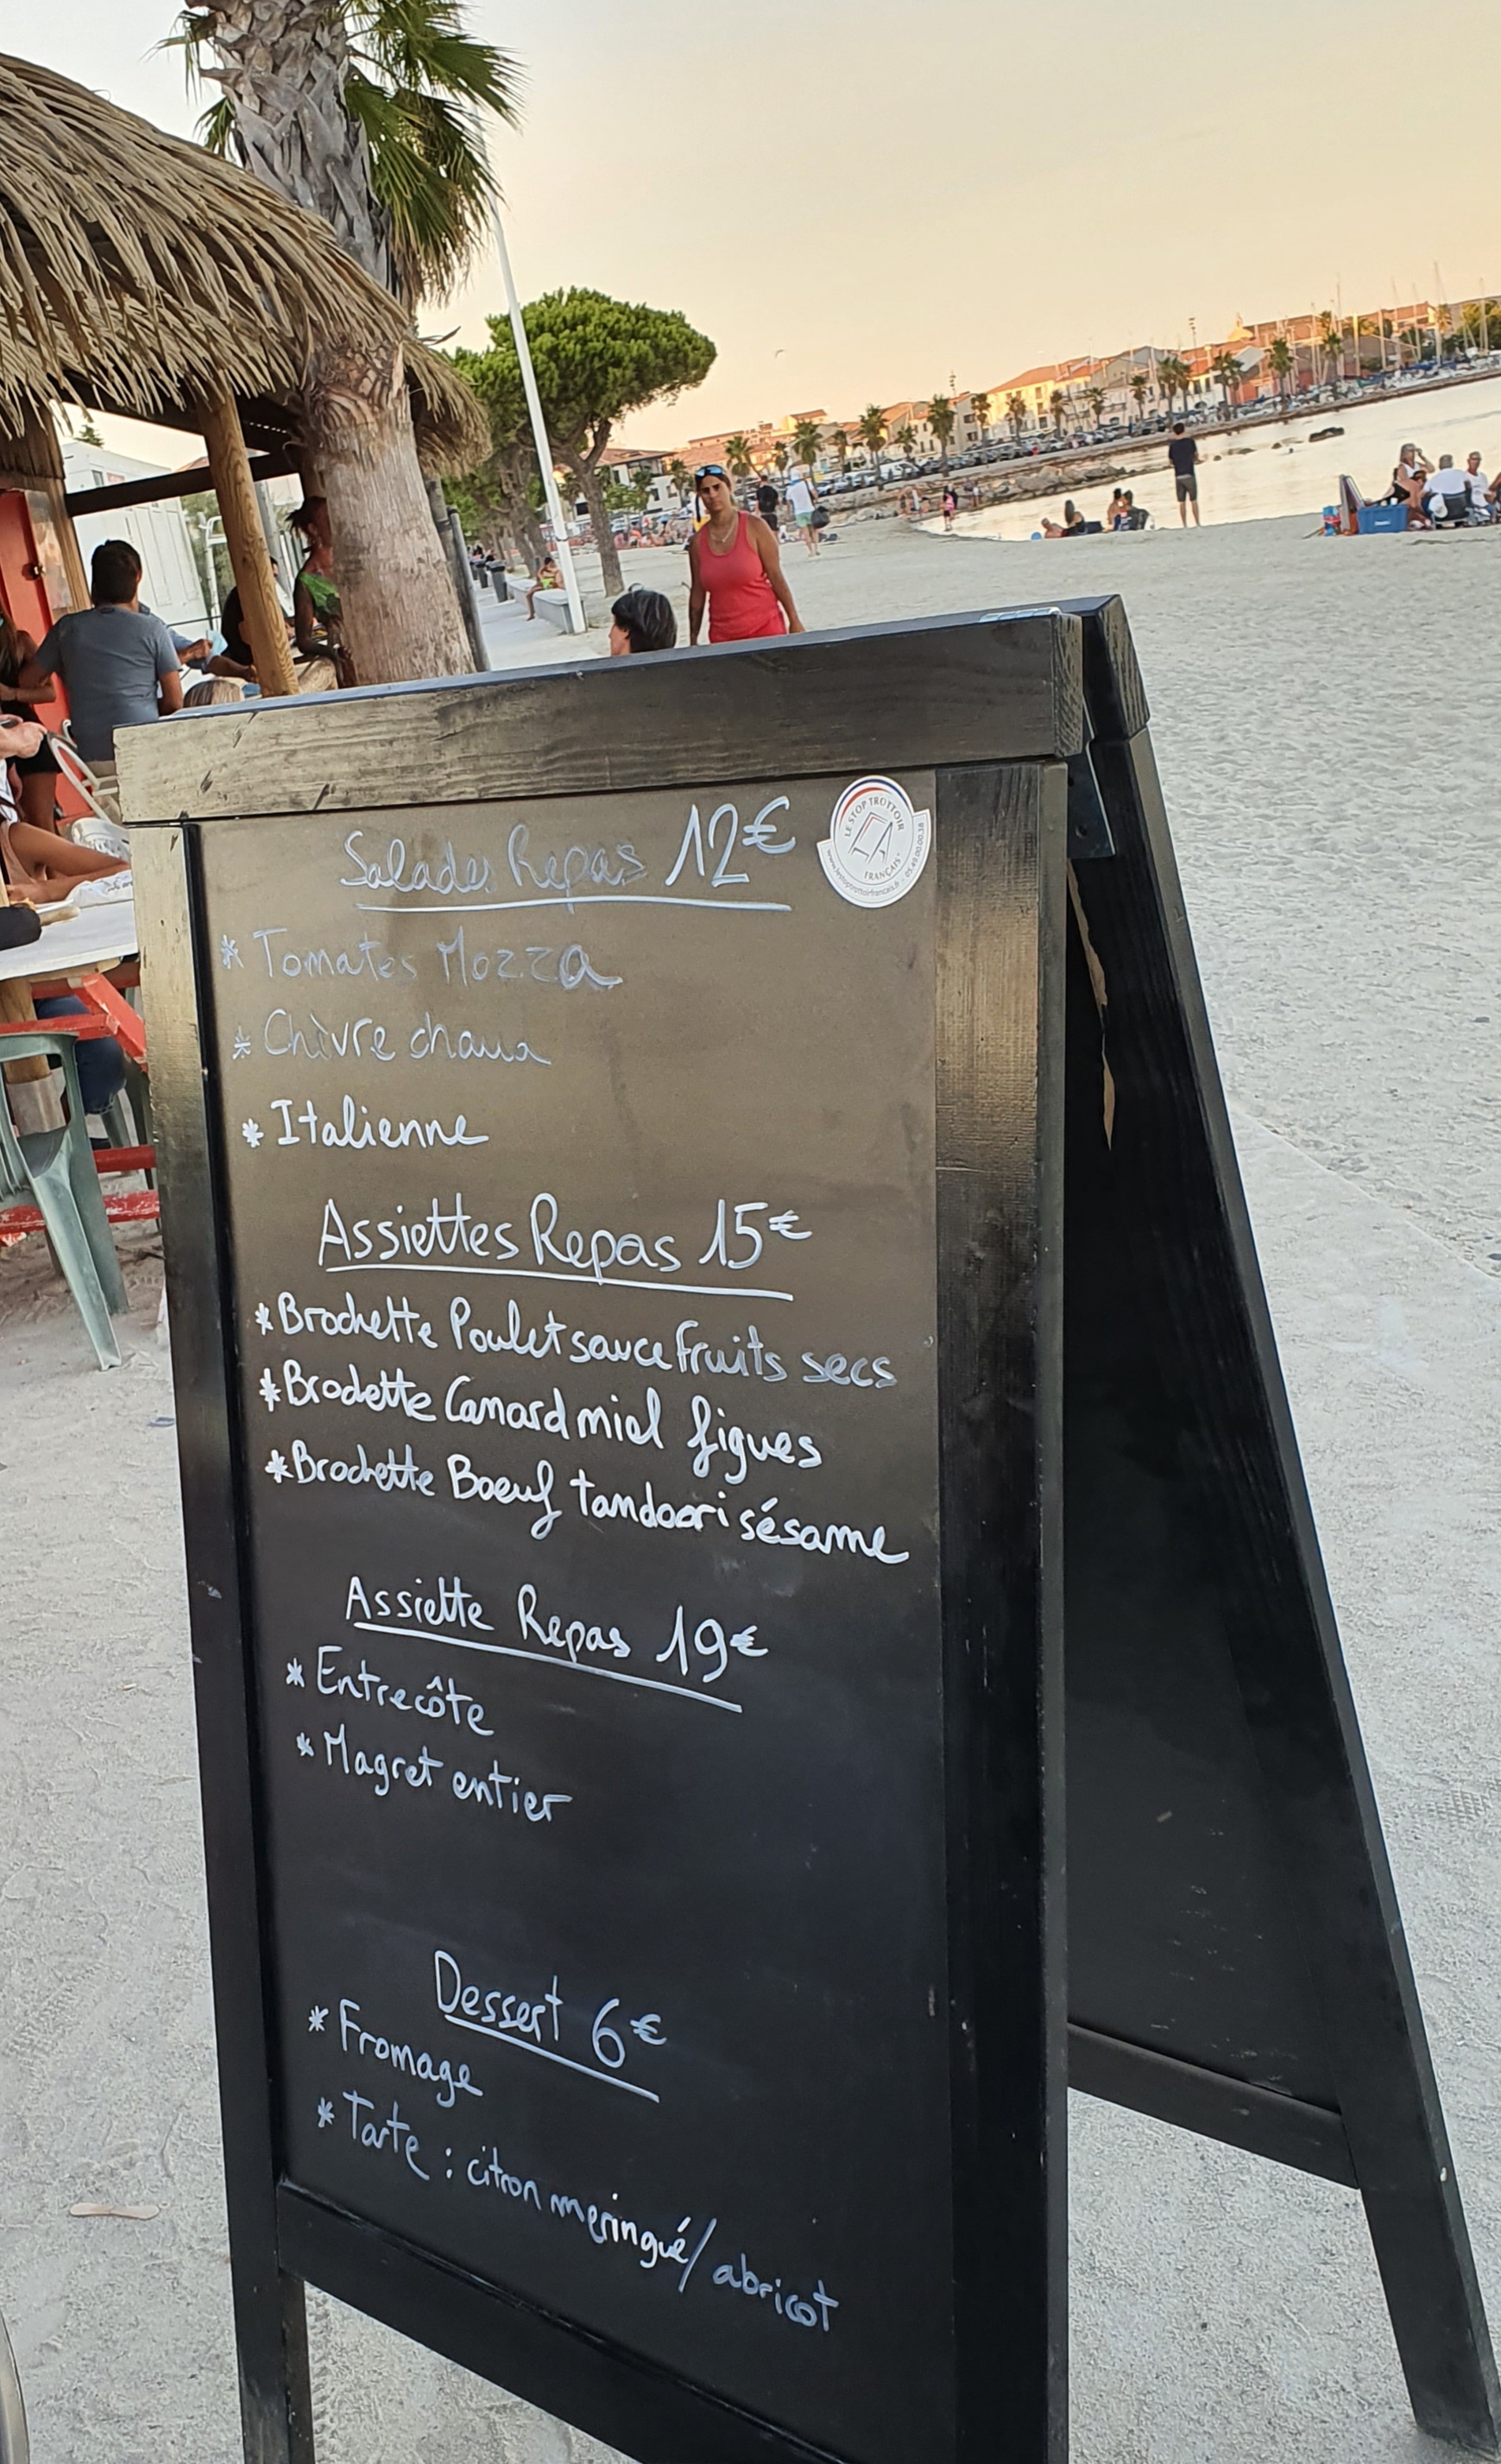 Salades Repas 12€
LE STOP TROTTOIR
FRANÇAIS
www.lestoptrottoirfrancais.fr - 05.49.00.00.38
* Tomates Mozza
* Chèvre chaud
* Italienne
Assiettes Repas 15€
* Brochette Poulet sauce fruits secs
* Brochette Canard miel figues
* Brochette Boeuf tandoori sésame
Assiette Repas 19€
* Entrecôte
* Magret entier
Dessert 6€
* Fromage
* Tarte : citron meringué/abricot